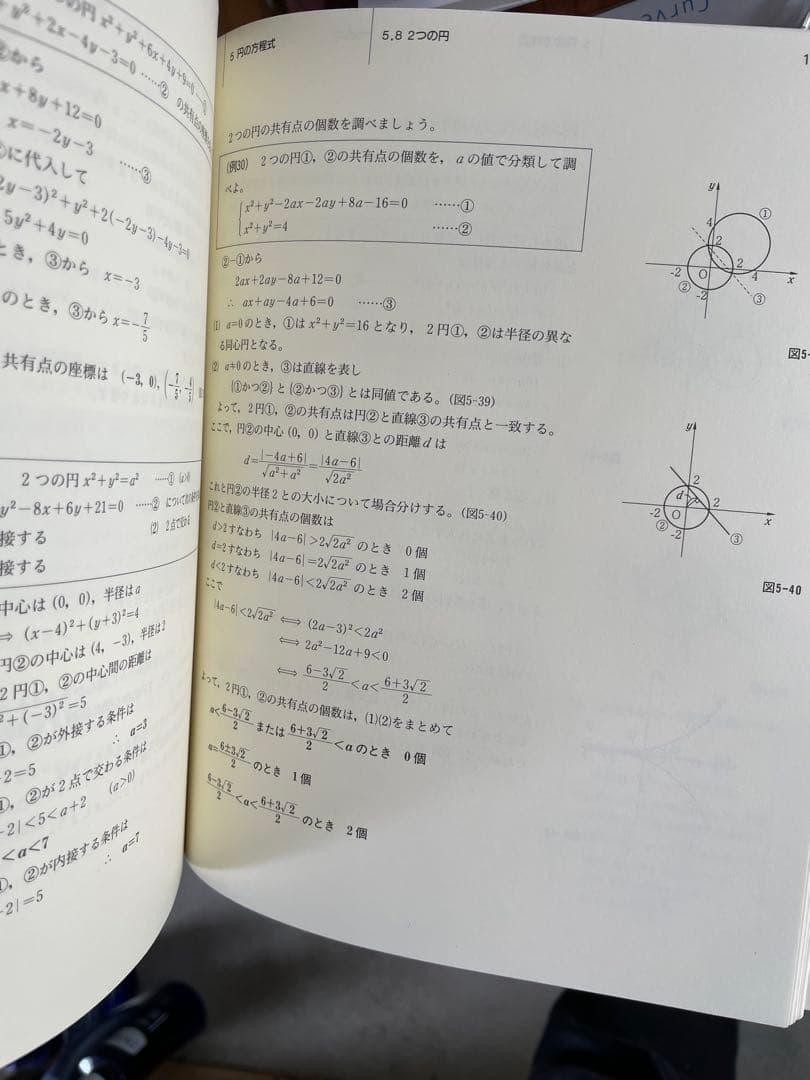 の円 x²+y²+6x+4y+9=0 ……①
+y²+2x−4y−3=0 ……②
②から
x+8y+12=0
x=−2y−3 ……③
①に代入して
2y−3)²+y²+2(−2y−3)−4y−3=0
5y²+4y=0
とき，③から x=−3
のとき，③から x=−7/5
共有点の座標は (−3, 0), (−7/5, −4/5)
2つの円 x²+y²=a² ……① (a>0)
y²−8x+6y+21=0 ……②
接する (2) 2点で交わる
接する
中心は (0, 0)，半径は a
⇒ (x−4)²+(y+3)²=4
円②の中心は (4, −3)，半径は 2
2円①，②の中心間の距離は
²+(−3)²=5
①，②が外接する条件は
+2=5 ∴ a=3
①，②が2点で交わる条件は
−2|<5<a+2 (a>0)
<a<7
①，②が内接する条件は
−2|=5 ∴ a=7
Curve
5 円の方程式
5.8 2つの円
1
2つの円の共有点の個数を調べましょう。
(例30) 2つの円①，②の共有点の個数を，aの値で分類して調
べよ。
x²+y²−2ax−2ay+8a−16=0 ……①
x²+y²=4 ……②
②−①から
2ax+2ay−8a+12=0
∴ ax+ay−4a+6=0 ……③
(1) a=0のとき，①は x²+y²=16 となり，2円①，②は半径の異な
る同心円となる。
(2) a≠0のとき，③は直線を表し
{①かつ②} と {②かつ③} とは同値である。(図5-39)
よって，2円①，②の共有点は円②と直線③の共有点と一致する。
ここで，円②の中心 (0, 0) と直線③との距離 d は
d=|−4a+6|/√(a²+a²)=|4a−6|/√(2a²)
これと円②の半径2との大小について場合分けする。(図5-40)
円②と直線③の共有点の個数は
d>2 すなわち |4a−6|>2√(2a²) のとき 0個
d=2 すなわち |4a−6|=2√(2a²) のとき 1個
d<2 すなわち |4a−6|<2√(2a²) のとき 2個
ここで
|4a−6|<2√(2a²) ⟺ (2a−3)²<2a²
⟺ 2a²−12a+9<0
⟺ (6−3√2)/2<a<(6+3√2)/2
よって，2円①，②の共有点の個数は，(1)(2)をまとめて
a<(6−3√2)/2 または (6+3√2)/2<a のとき 0個
a=(6±3√2)/2 のとき 1個
(6−3√2)/2<a<(6+3√2)/2 のとき 2個
y
①
4
2
-2 O 2 4 x
② -2 ③
図5-
y
2
d
-2 O 2 x
② -2 ③
図5-40